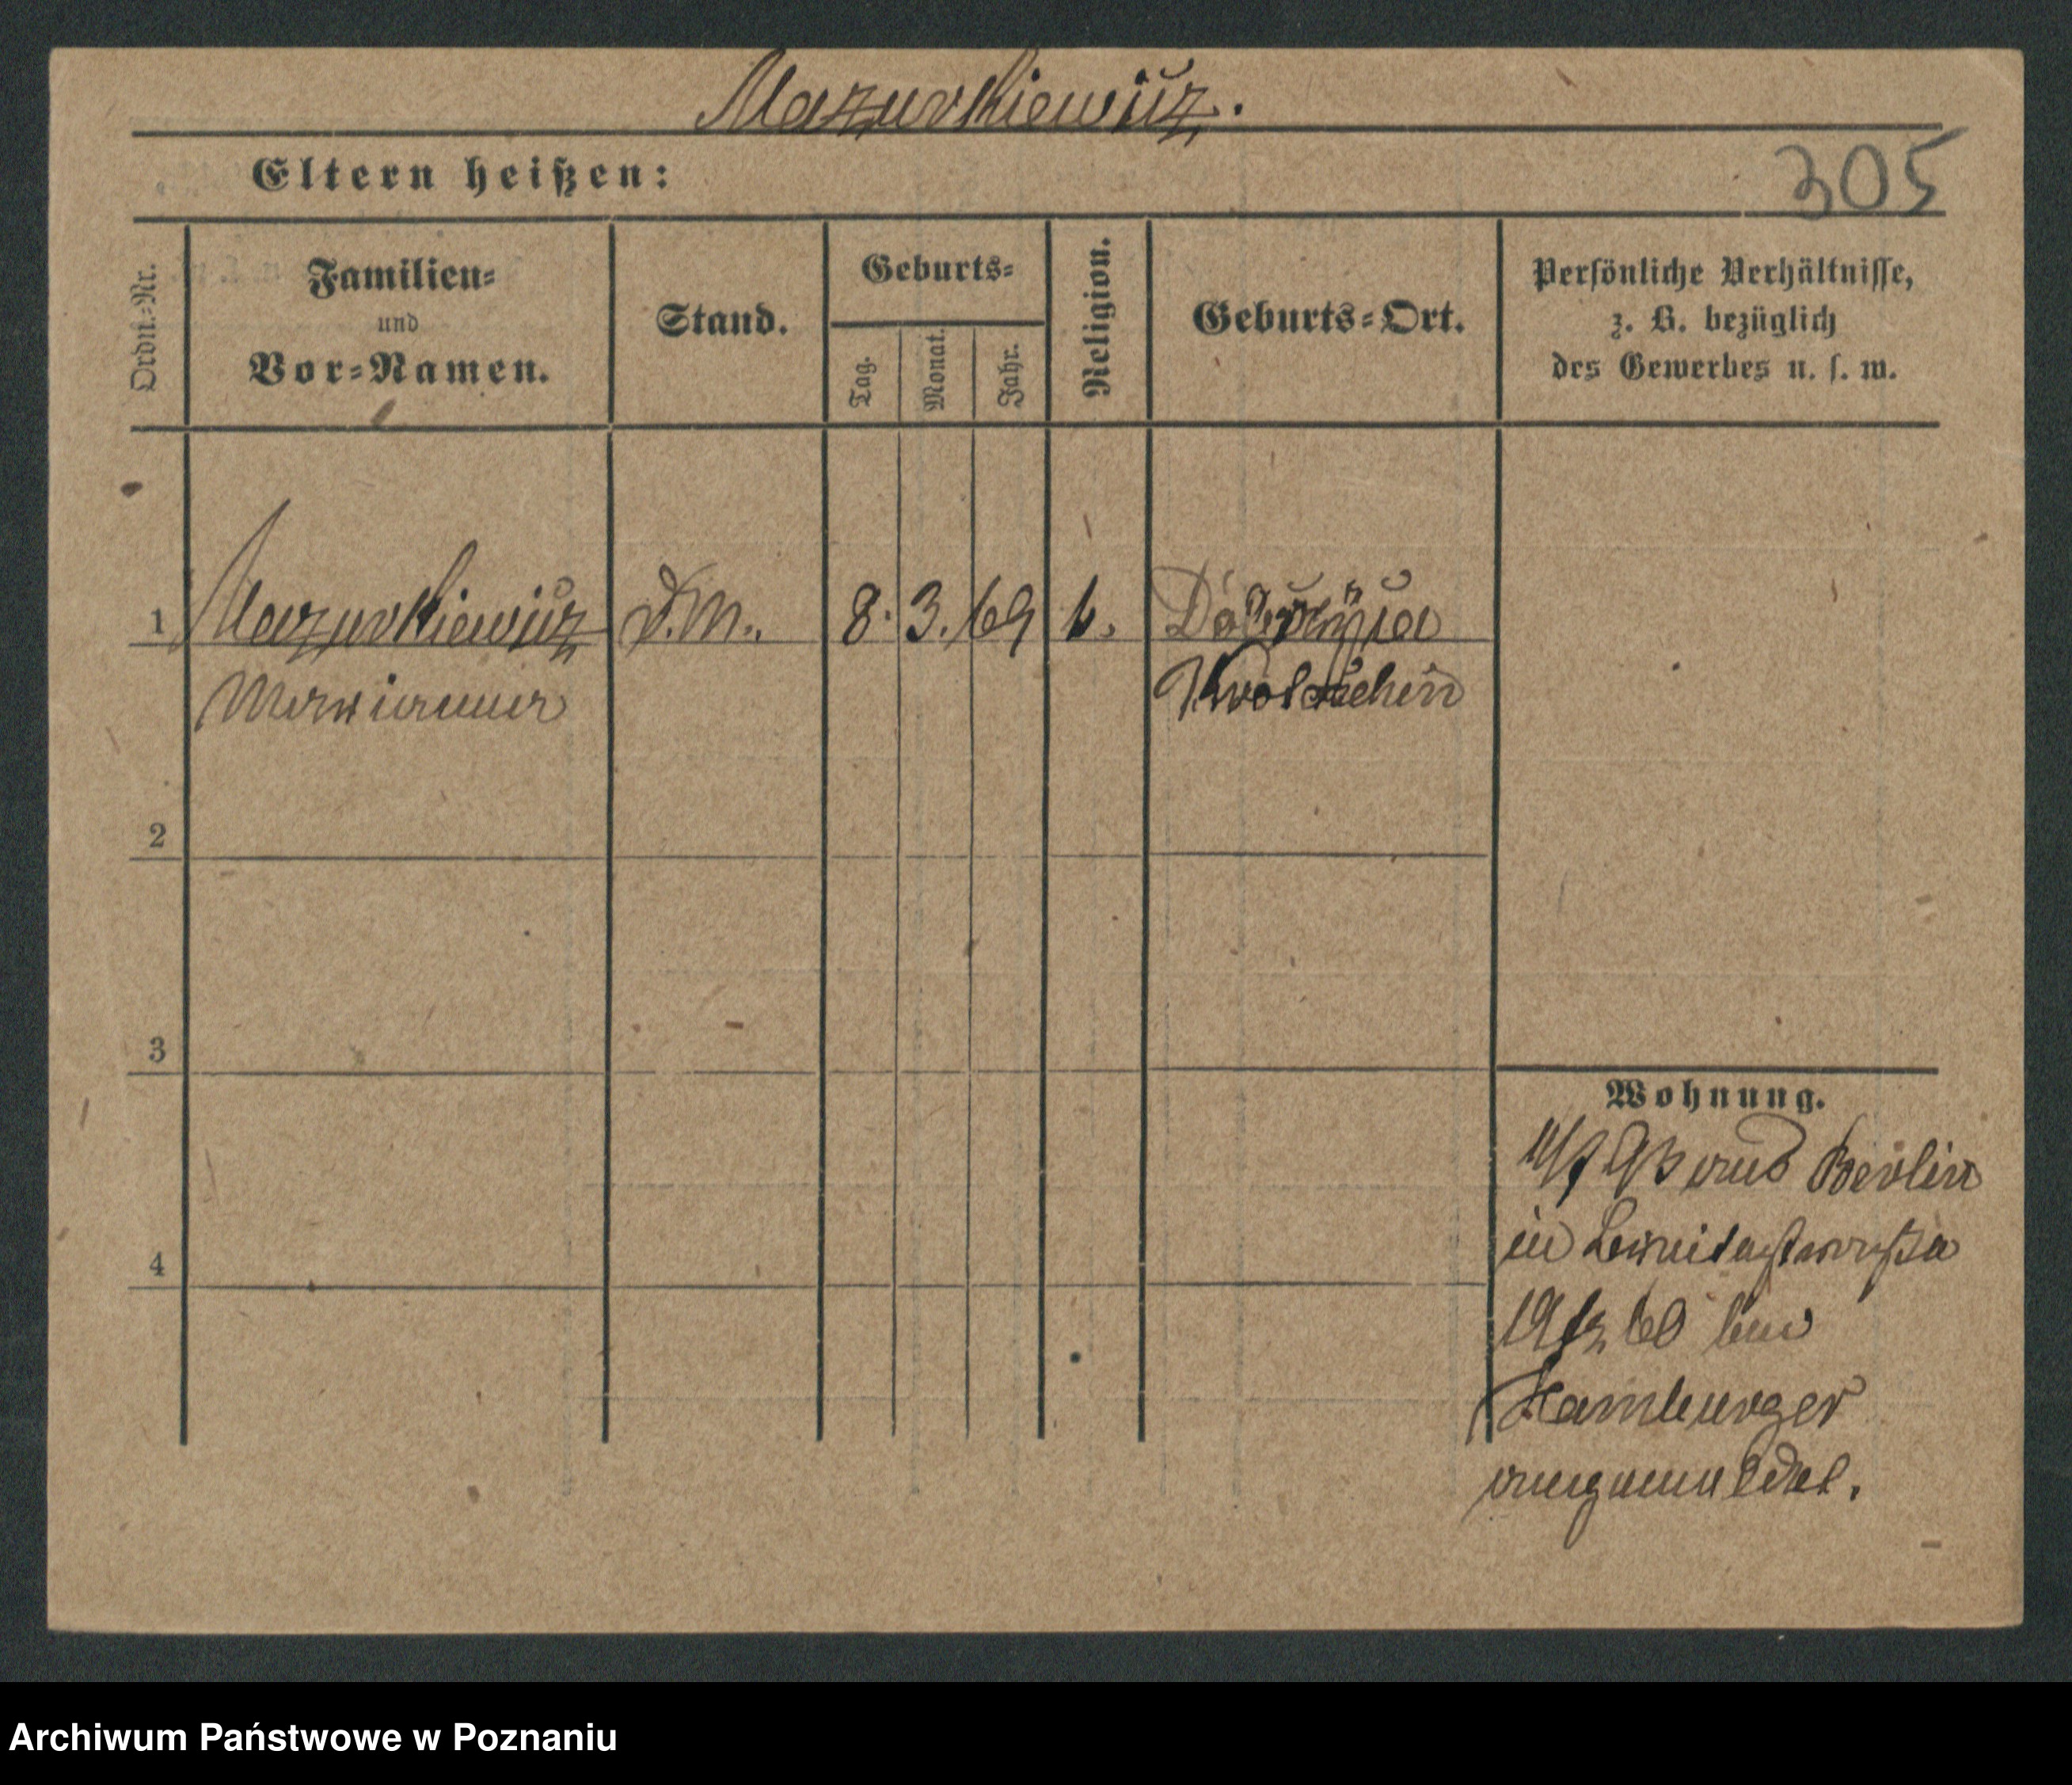 Mazurkiewicz.
Eltern heißen:
305
Ordn.-Nr.
Familien-
und
Vor-Namen.
Stand.
Geburts-
Tag.
Monat.
Jahr.
Religion.
Geburts-Ort.
Persönliche Verhältnisse,
z. B. bezüglich
des Gewerbes u. s. w.
1 Mazurkiewicz D.M. 8. 3. 69 k.
Marianna Krotoschin
2
3
4
Wohnung.
93 aus Berlin
in
60 bei
Hamburger
angemeldet.
Archiwum Państwowe w Poznaniu